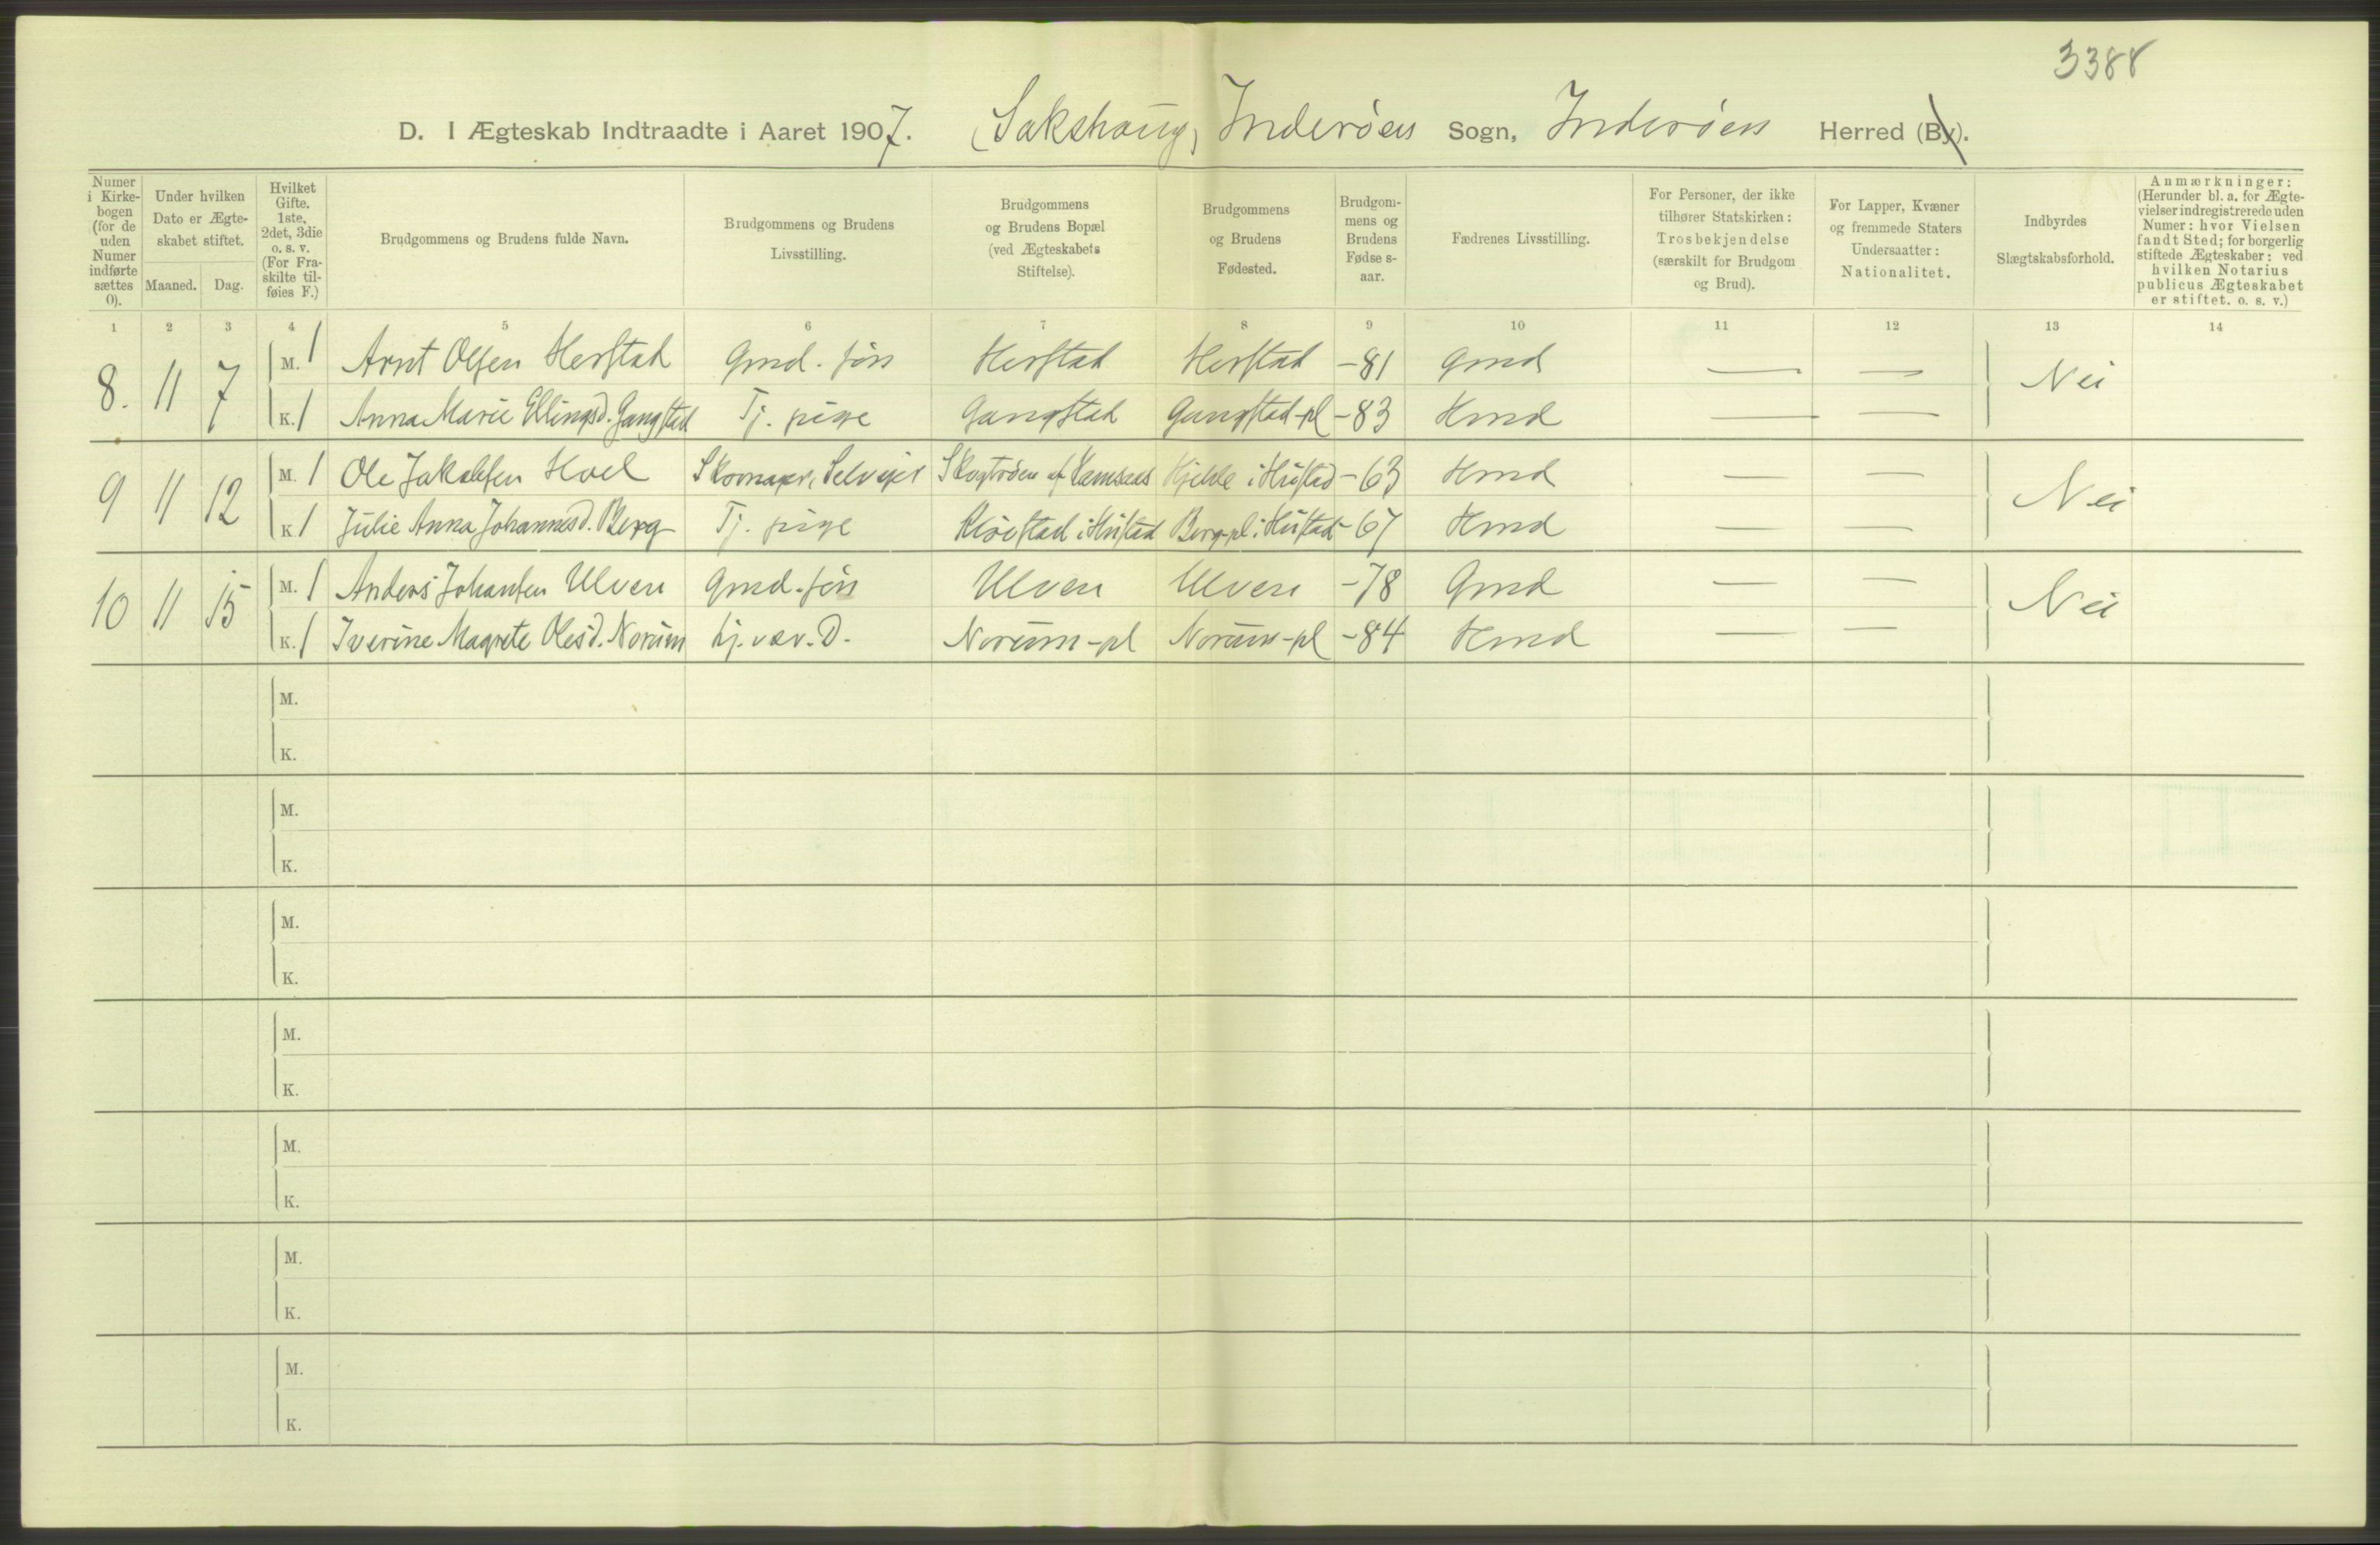 3388
D. I Ægteskab Indtraadte i Aaret 1907. (Sakshaug) Inderöen Sogn, Inderöen Herred (By).
Numer i Kirkebogen (for de uden Numer indførte sættes 0).
Under hvilken Dato er Ægteskabet stiftet.
Maaned. Dag.
Hvilket Gifte. 1ste, 2det, 3die o. s. v. (For Fraskilte tilføies F.)
Brudgommens og Brudens fulde Navn.
Brudgommens og Brudens Livsstilling.
Brudgommens og Brudens Bopæl (ved Ægteskabets Stiftelse).
Brudgommens og Brudens Fødested.
Brudgommens og Brudens Fødselsaar.
Fædrenes Livsstilling.
For Personer, der ikke tilhører Statskirken: Trosbekjendelse (særskilt for Brudgom og Brud).
For Lapper, Kvæner og fremmede Staters Undersaatter: Nationalitet.
Indbyrdes Slægtskabsforhold.
Anmærkninger: (Herunder bl. a. for Ægtevielser indregistrerede uden Numer: hvor Vielsen fandt Sted; for borgerlig stiftede Ægteskaber: ved hvilken Notarius publicus Ægteskabet er stiftet. o. s. v.)
1 2 3 4 5 6 7 8 9 10 11 12 13 14
8. 11 7 M. 1 Arnt Olsen Herstad Gmd. søn Herstad Herstad -81 Gmd — — Nei
K. 1 Anna Marie Ellingsd. Gangstad Tj. pige Gangstad Gangstad-pl -83 Hmd — —
9 11 12 M. 1 Ole Jakobsen Hoel Skomager, Selveier af Hjelde i Hustad -63 Hmd — — Nei
K. 1 Julie Anna Johannesd. Berg Tj. pige i Hustad Berg-pl i Hustad -67 Hmd — —
10 11 15 M. 1 Anders Johansen Ulven Gmd. søn Ulven Ulven -78 Gmd — — Nei
K. 1 Iverine Magrete Olesd. Norum hj. vær. D. Norum-pl Norum-pl -84 Hmd — —
M.
K.
M.
K.
M.
K.
M.
K.
M.
K.
M.
K.
M.
K.